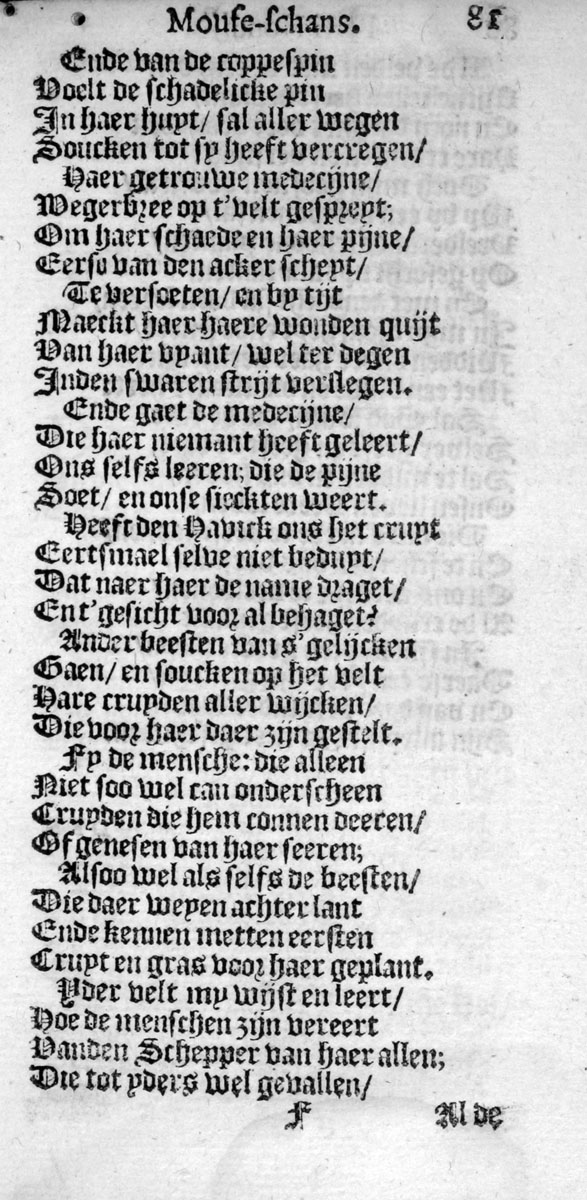 Moufe-ſchans. 81
Ende van de coppeſpin
Voelt de ſchadelicke pin
In haer huyt/ ſal aller wegen
Soucken tot ſy heeft vercregen/
Haer getrouwe medecijne/
Wegerbree op t'velt geſpreyt;
Om haer ſchaede en haer pijne/
Eerſy van den acker ſcheyt/
Te verſoeten/ en by tijt
Maeckt haer haere wonden quijt
Van haer vyant/ wel ter degen
Inden ſwaren ſtrijt verſlegen.
Ende gaet de medecijne/
Die haer niemant heeft geleert/
Ons ſelfs leeren; die de pijne
Soet/ en onſe ſieckten weert.
Heeft den Havick ons het cruyt
Eertſmael ſelve niet beduyt/
Dat naer haer de name draget/
En t'geſicht voor al behaget?
Ander beeſten van s'gelijcken
Gaen/ en ſoucken op het velt
Hare cruyden aller wijcken/
Die voor haer daer zijn geſtelt.
Fy de menſche: die alleen
Niet ſoo wel can onderſcheen
Cruyden die hem connen deeren/
Of geneſen van haer ſeeren;
Alſoo wel als ſelfs de beeſten/
Die daer weyen achter lant
Ende kennen metten eerſten
Cruyt en gras voor haer geplant.
Yder velt my wijſt en leert/
Hoe de menſchen zijn vereert
Vanden Schepper van haer allen;
Die tot yders wel gevallen/
F Al de